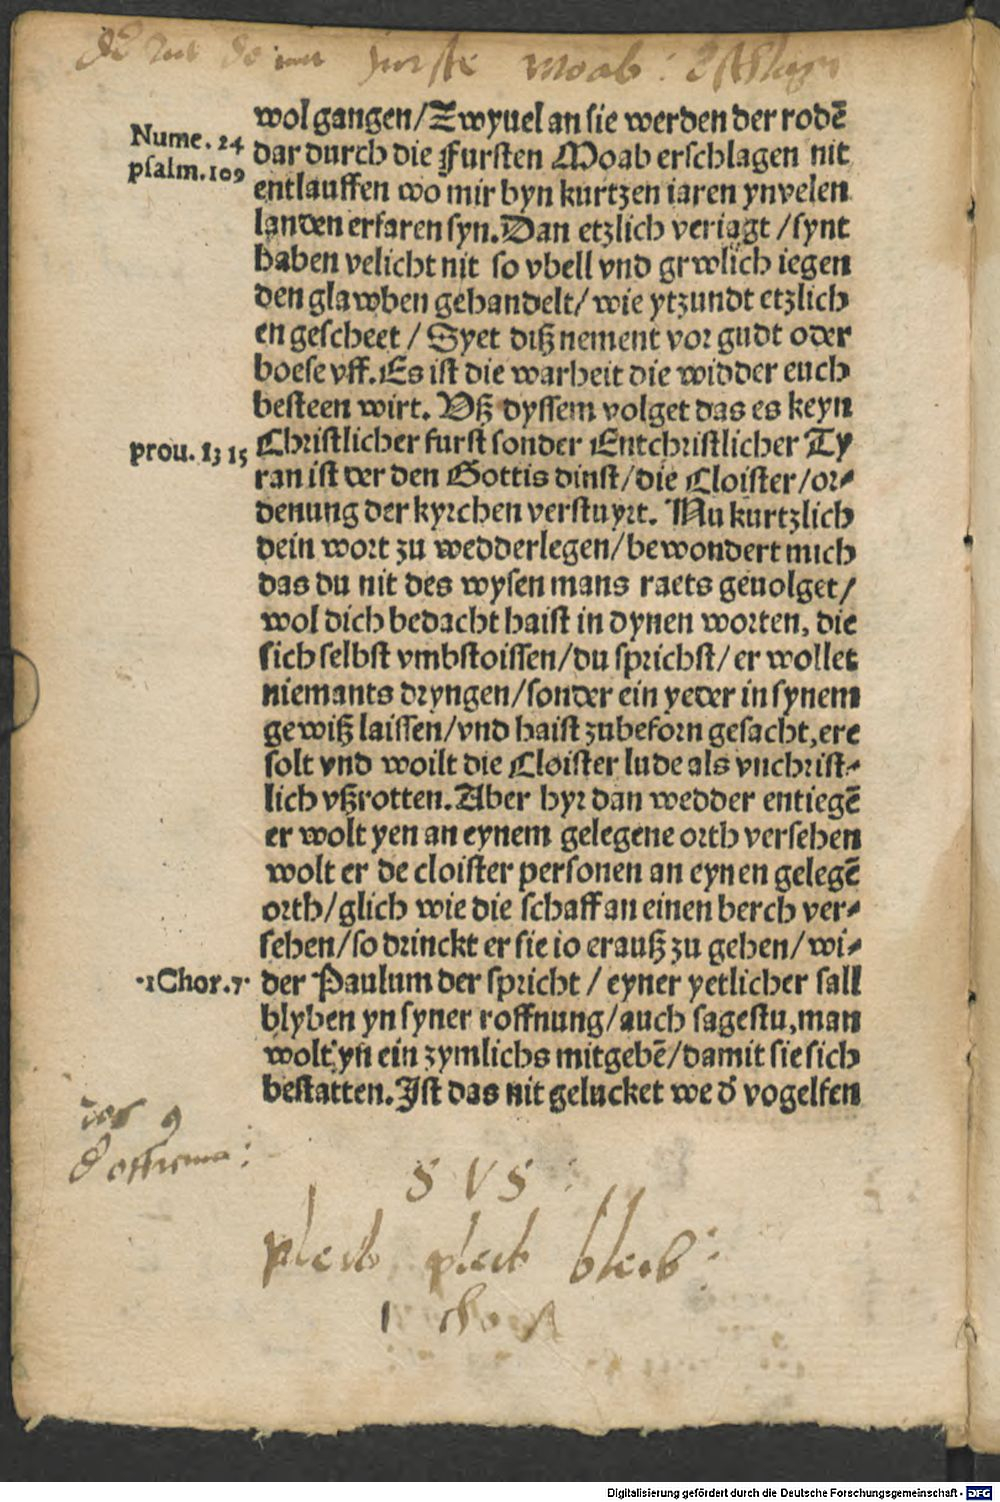 furste moab :
wol gangen/Zwyuel an sie werden der rodē
Nume. 24
dar durch die Fursten Moab erschlagen nit
psalm.109
entlauffen wo mir byn kurtzen iaren ynvelen
landen erfaren syn.Dan etzlich veriagt /synt
haben velicht nit so vbell vnd grwlich iegen
den glawben gehandelt/wie ytzundt etzlich
en gescheet / Syet diß nement vor gudt oder
boese vff.Es ist die warheit die widder euch
besteen wirt. Vß dyssem volget das es keyn
prou. 13 15
Christlicher furst sonder Entchristlicher Ty
ran ist der den Gottis dinst/die Cloister/or-
denung der kyrchen verstuyrt. Nu kurtzlich
dein wort zu wedderlegen/bewondert mich
das du nit des wysen mans raets geuolget/
wol dich bedacht haist in dynen worten, die
sich selbst vmbstoissen/du sprichst/er wollet
niemants dryngen/sonder ein yeder in synem
gewiß laissen/vnd haist zubeforn gesacht,ere
solt vnd woilt die Cloister lude als vnchrist-
lich vßrotten.Aber hyr dan wedder entiegē
er wolt yen an eynem gelegene orth versehen
wolt er de cloister personen an eynen gelegē
orth/glich wie die schaff an einen berch ver-
sehen/so drinckt er sie io erauß zu gehen/wi-
·1Chor.7·
der Paulum der spricht / eyner yetlicher sall
blyben yn syner roffnung/auch sagestu,man
wolt yn ein zymlichs mitgebē/damit sie sich
bestatten.Ist das nit gelucket we d' vogelfen
S V S :
pleib pleib bleib :
Digitalisierung gefördert durch die Deutsche Forschungsgemeinschaft - DFG